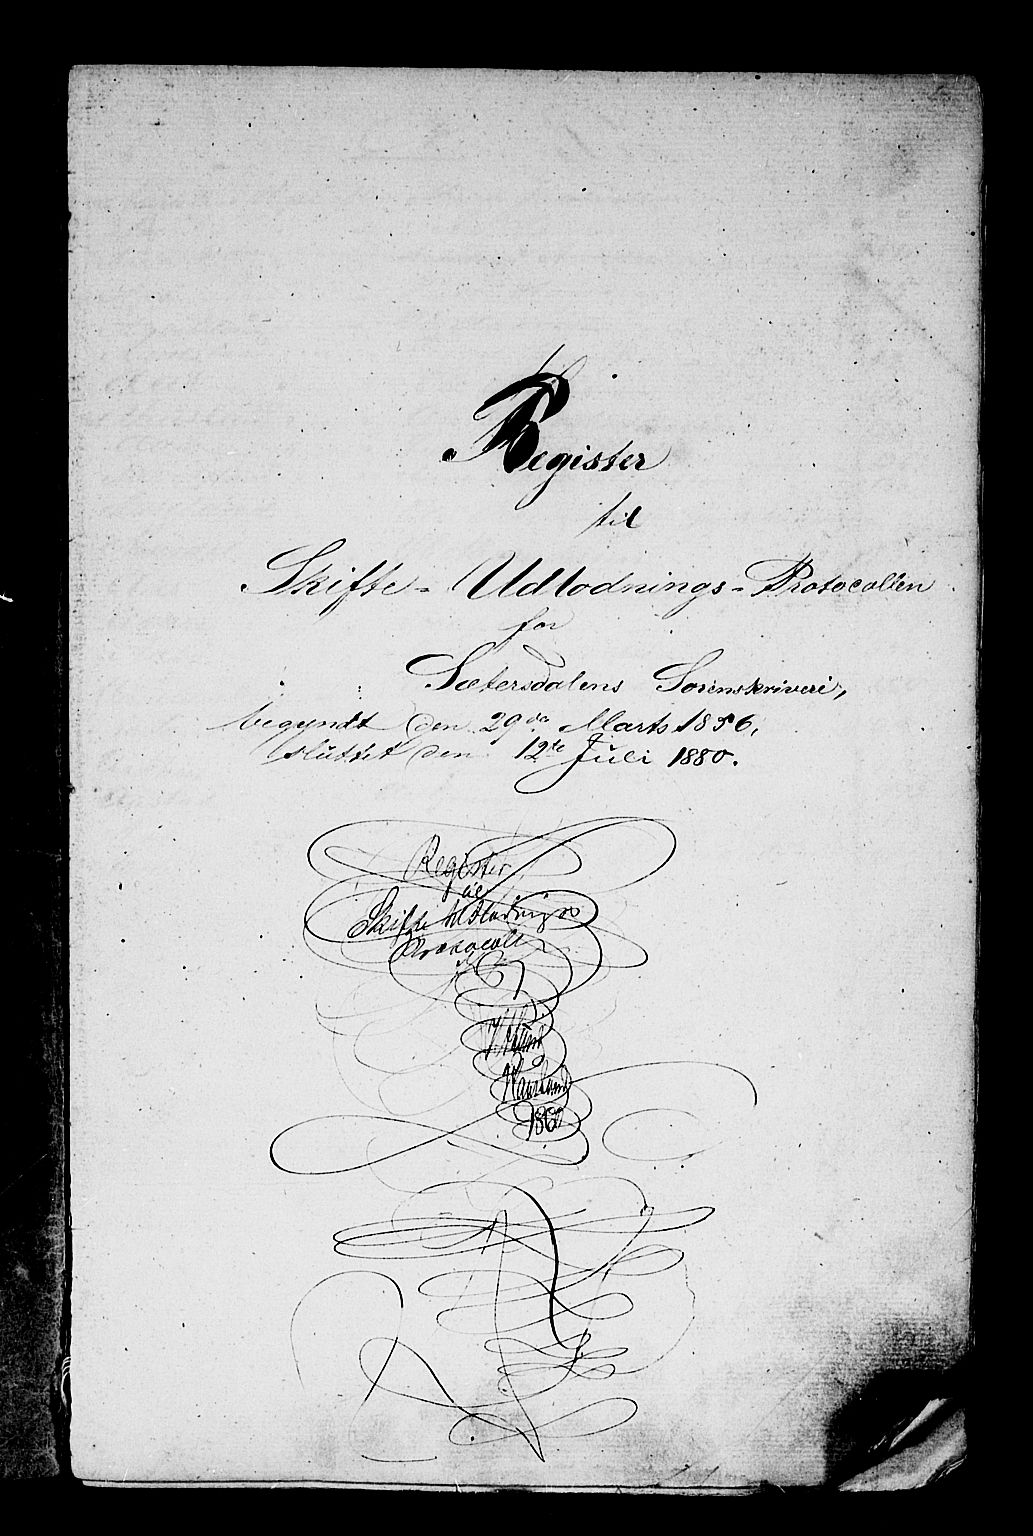 Register
til
Skifte-Udlodnings-Protocollen
for
Sætersdalens Sorenskriveri,
begyndt den 29de Marts 1856,
sluttet den 12te Juli 1880.
Register
til
Skifte Udlodnings
Protocoll